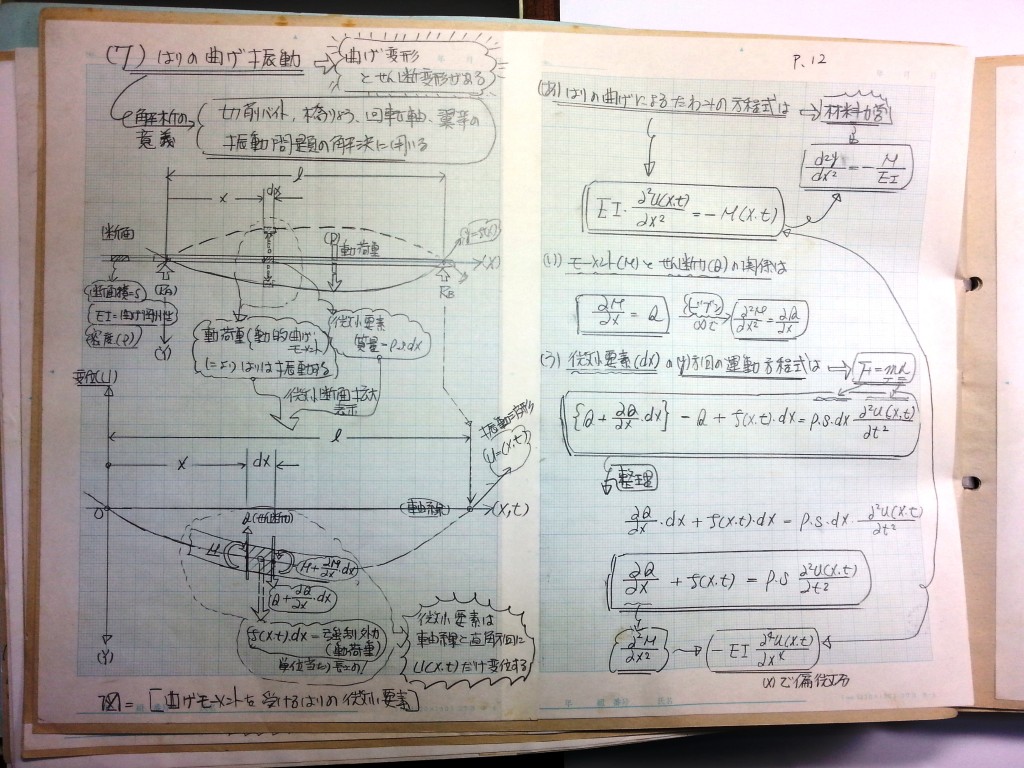 (7) はりの曲げ振動 ⇒ 曲げ変形
とせん断変形がある
解析の
意義
切削バイト、橋りょう、回転軸、翼等の
振動問題の解決に用いる
l
x
dx
断面
動荷重
(X)
断面積=S
RB
EI=曲げ剛性
密度(ρ)
(Y)
動荷重(動的曲げ
モーメント)
によりはりは振動する
微小要素
質量=ρ.s.dx
微小断面拡大
表示
変位(U)
l
x
dx
振動=撓形
U=(x,t)
O
軸線
(X,t)
Q(せん断力)
M
M+∂M/∂x.dx
Q+∂Q/∂x.dx
f(x,t).dx=強制外力
(動荷重)
単位当たり長さの
微小要素は
軸線と直角方向に
U(x,t)だけ変位する
(Y)
図=[曲げモーメントを受けるはりの微小要素]
P、12
(あ) はりの曲げによるたわみの方程式は → 材料力学
d²y/dx² = -M/EI
EI・∂²U(x,t)/∂x² = -M(x,t)
(い) モーメント(M)とせん断力(Q)の関係は
∂M/∂x = Q
∂²M/∂x² = ∂Q/∂x
(う) 微小要素(dx)の(y)方向の運動方程式は ⇒ F=mα
{Q+∂Q/∂x.dx} - Q + f(x,t).dx = ρ.s.dx ∂²U(x,t)/∂t²
整理
∂Q/∂x.dx + f(x,t).dx = ρ.s.dx.∂²U(x,t)/∂t²
∂Q/∂x + f(x,t) = ρ.s ∂²U(x,t)/∂t²
∂²M/∂x² → -EI ∂⁴U(x,t)/∂x⁴
(x)で偏微する